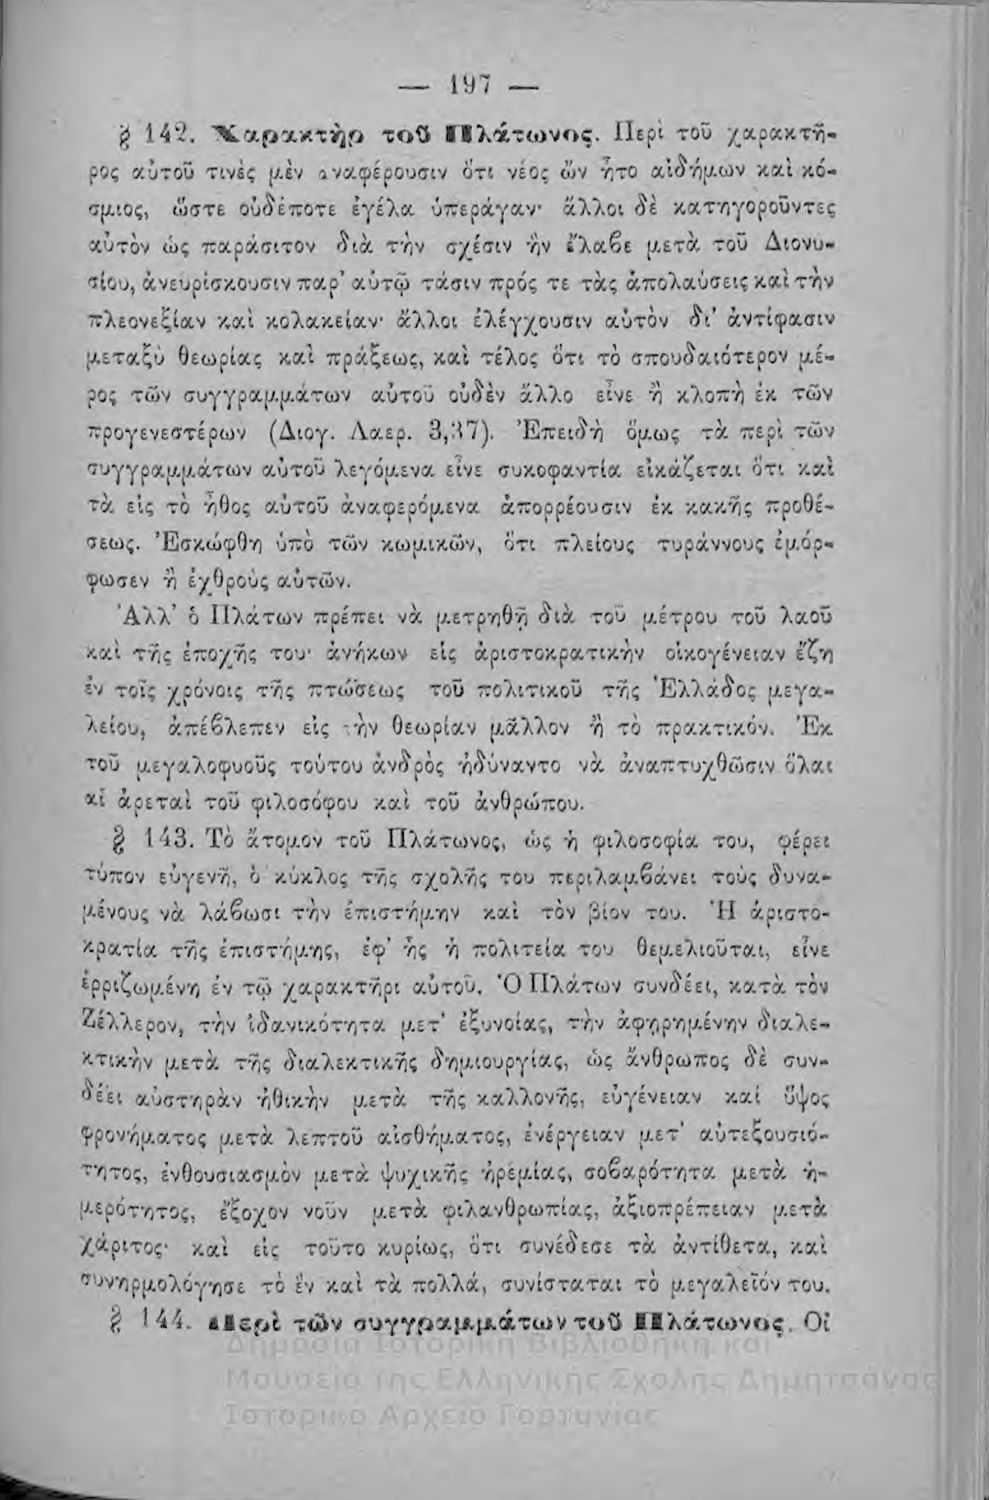 — 197 —
§ 142. Χαρακτὴρ τοῦ Πλάτωνος. Περὶ τοῦ χαρακτῆ-
ρος αὐτοῦ τινὲς μὲν ἀναφέρουσιν ὅτι νέος ὢν ἦτο αἰδήμων καὶ κό-
σμιος, ὥστε οὐδέποτε ἐγέλα ὑπεράγαν· ἄλλοι δὲ κατηγοροῦντες
αὐτὸν ὡς παράσιτον διὰ τὴν σχέσιν ἣν ἔλαβε μετὰ τοῦ Διονυ-
σίου, ἀνευρίσκουσιν παρ' αὐτῷ τάσιν πρός τε τὰς ἀπολαύσεις καὶ τὴν
πλεονεξίαν καὶ κολακείαν· ἄλλοι ἐλέγχουσιν αὐτὸν δι' ἀντίφασιν
μεταξὺ θεωρίας καὶ πράξεως, καὶ τέλος ὅτι τὸ σπουδαιότερον μέ-
ρος τῶν συγγραμμάτων αὐτοῦ οὐδὲν ἄλλο εἶνε ἢ κλοπὴ ἐκ τῶν
προγενεστέρων (Διογ. Λαερ. 3,37). Ἐπειδὴ ὅμως τὰ περὶ τῶν
συγγραμμάτων αὐτοῦ λεγόμενα εἶνε συκοφαντία εἰκάζεται ὅτι καὶ
τὰ εἰς τὸ ἦθος αὐτοῦ ἀναφερόμενα ἀπορρέουσιν ἐκ κακῆς προθέ-
σεως. Ἐσκώφθη ὑπὸ τῶν κωμικῶν, ὅτι πλείους τυράννους ἐμόρ-
φωσεν ἢ ἐχθροὺς αὐτῶν.
Ἀλλ' ὁ Πλάτων πρέπει νὰ μετρηθῇ διὰ τοῦ μέτρου τοῦ λαοῦ
καὶ τῆς ἐποχῆς του· ἀνήκων εἰς ἀριστοκρατικὴν οἰκογένειαν ἔζη
ἐν τοῖς χρόνοις τῆς πτώσεως τοῦ πολιτικοῦ τῆς Ἑλλάδος μεγα-
λείου, ἀπέβλεπεν εἰς τὴν θεωρίαν μᾶλλον ἢ τὸ πρακτικόν. Ἐκ
τοῦ μεγαλοφυοῦς τούτου ἀνδρὸς ἠδύναντο νὰ ἀναπτυχθῶσιν ὅλαι
αἱ ἀρεταὶ τοῦ φιλοσόφου καὶ τοῦ ἀνθρώπου.
§ 143. Τὸ ἄτομον τοῦ Πλάτωνος, ὡς ἡ φιλοσοφία του, φέρει
τύπον εὐγενῆ, ὁ κύκλος τῆς σχολῆς του περιλαμβάνει τοὺς δυνα-
μένους νὰ λάβωσι τὴν ἐπιστήμην καὶ τὸν βίον του. Ἡ ἀριστο-
κρατία τῆς ἐπιστήμης, ἐφ' ἧς ἡ πολιτεία του θεμελιοῦται, εἶνε
ἐρριζωμένη ἐν τῷ χαρακτῆρι αὐτοῦ. Ὁ Πλάτων συνδέει, κατὰ τὸν
Ζέλλερον, τὴν ἰδανικότητα μετ' ἐξυνοίας, τὴν ἀφῃρημένην διαλε-
κτικὴν μετὰ τῆς διαλεκτικῆς δημιουργίας, ὡς ἄνθρωπος δὲ συν-
δέει αὐστηρὰν ἠθικὴν μετὰ τῆς καλλονῆς, εὐγένειαν καί ὕψος
φρονήματος μετὰ λεπτοῦ αἰσθήματος, ἐνέργειαν μετ' αὐτεξουσιό-
τητος, ἐνθουσιασμὸν μετὰ ψυχικῆς ἠρεμίας, σοβαρότητα μετὰ ἡ-
μερότητος, ἔξοχον νοῦν μετὰ φιλανθρωπίας, ἀξιοπρέπειαν μετὰ
χάριτος· καὶ εἰς τοῦτο κυρίως, ὅτι συνέδεσε τὰ ἀντίθετα, καὶ
συνηρμολόγησε τὸ ἓν καὶ τὰ πολλά, συνίσταται τὸ μεγαλεῖόν του.
§ 144. Περὶ τῶν συγγραμμάτων τοῦ Πλάτωνος. Οἱ
Δημόσια Ιστορική Βιβλιοθήκη και
Μουσείο της Ελληνικής Σχολής Δημητσάνας
Ιστορικό Αρχείο Γορτυνίας